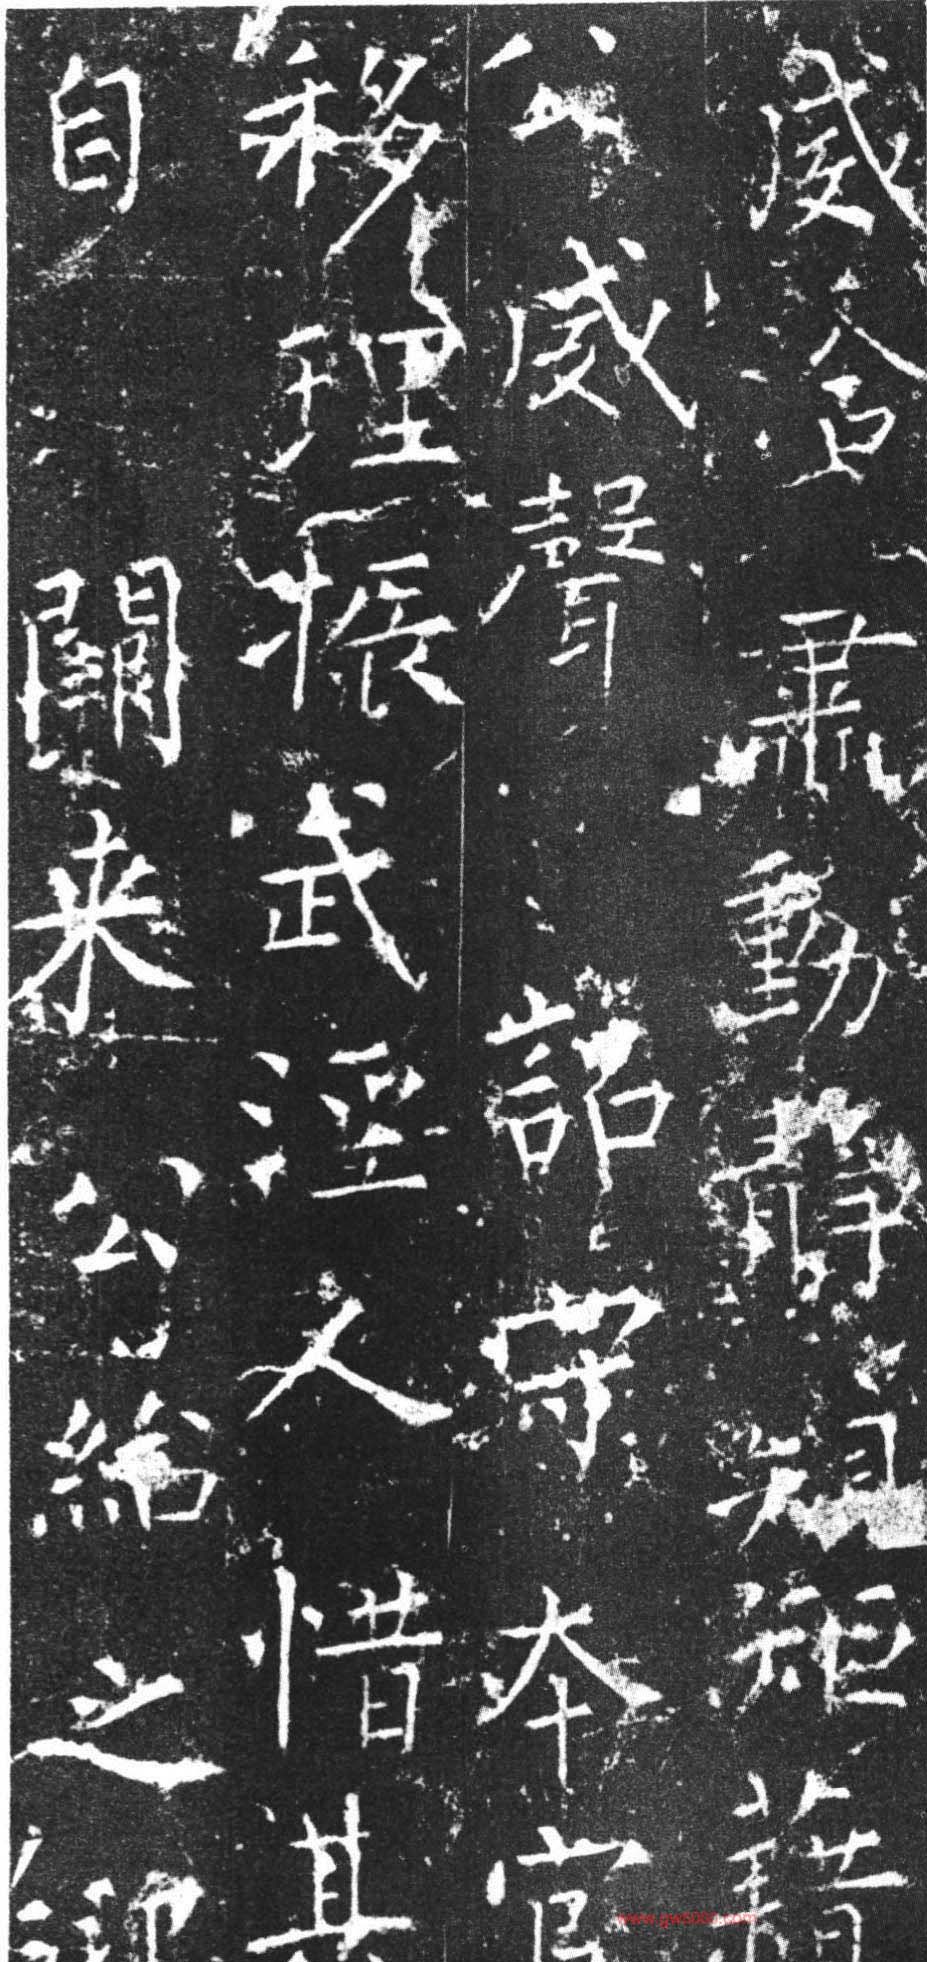 威令肅動靜規矩藉
公威聲詔守本官
移理振武涇人惜其
自闢来公綰之御
www.gw5000.com